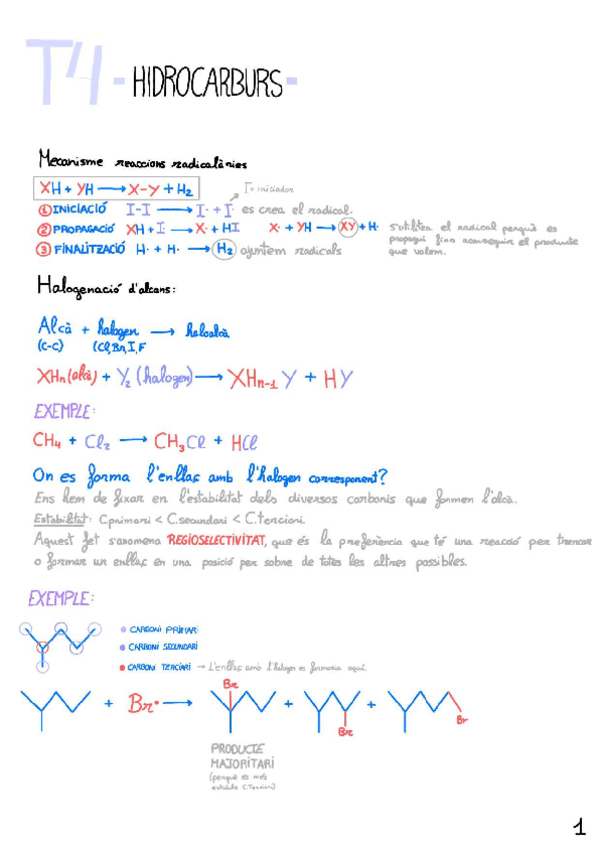 T4 - HIDROCARBURS -
Mecanisme reaccions radicalànies
XH + YH ⟶ X-Y + H₂
I = iniciador
① INICIACIÓ I-I ⟶ I· + I· es crea el radical.
② PROPAGACIÓ XH + I· ⟶ X· + HI X· + YH ⟶ XY + H· s'utilitza el radical perquè es
propagui fins aconseguir el producte
que volem.
③ FINALITZACIÓ H· + H· ⟶ H₂ ajuntem radicals
Halogenació d'alcans:
Alcà + halogen ⟶ haloalcà
(C-C) (Cl, Br, I, F
XHn (alcà) + Y₂ (halogen) ⟶ XHn-1 Y + HY
EXEMPLE:
CH₄ + Cl₂ ⟶ CH₃Cl + HCl
On es forma l'enllaç amb l'halogen corresponent?
Ens hem de fixar en l'estabilitat dels diversos carbonis que formen l'alcà.
Estabilitat: C.primari < C.secundari < C.terciari.
Aquest fet s'anomena REGIOSELECTIVITAT, que és la preferència que té una reacció per trencar
o formar un enllaç en una posició per sobre de totes les altres possibles.
EXEMPLE:
• CARBONI PRIMARI
• CARBONI SECUNDARI
• CARBONI TERCIARI → L'enllaç amb l'halogen es formaria aquí.
+ Br· ⟶ Br + Br + Br
PRODUCTE
MAJORITARI
(perquè és més
estable C.Terciari)
1